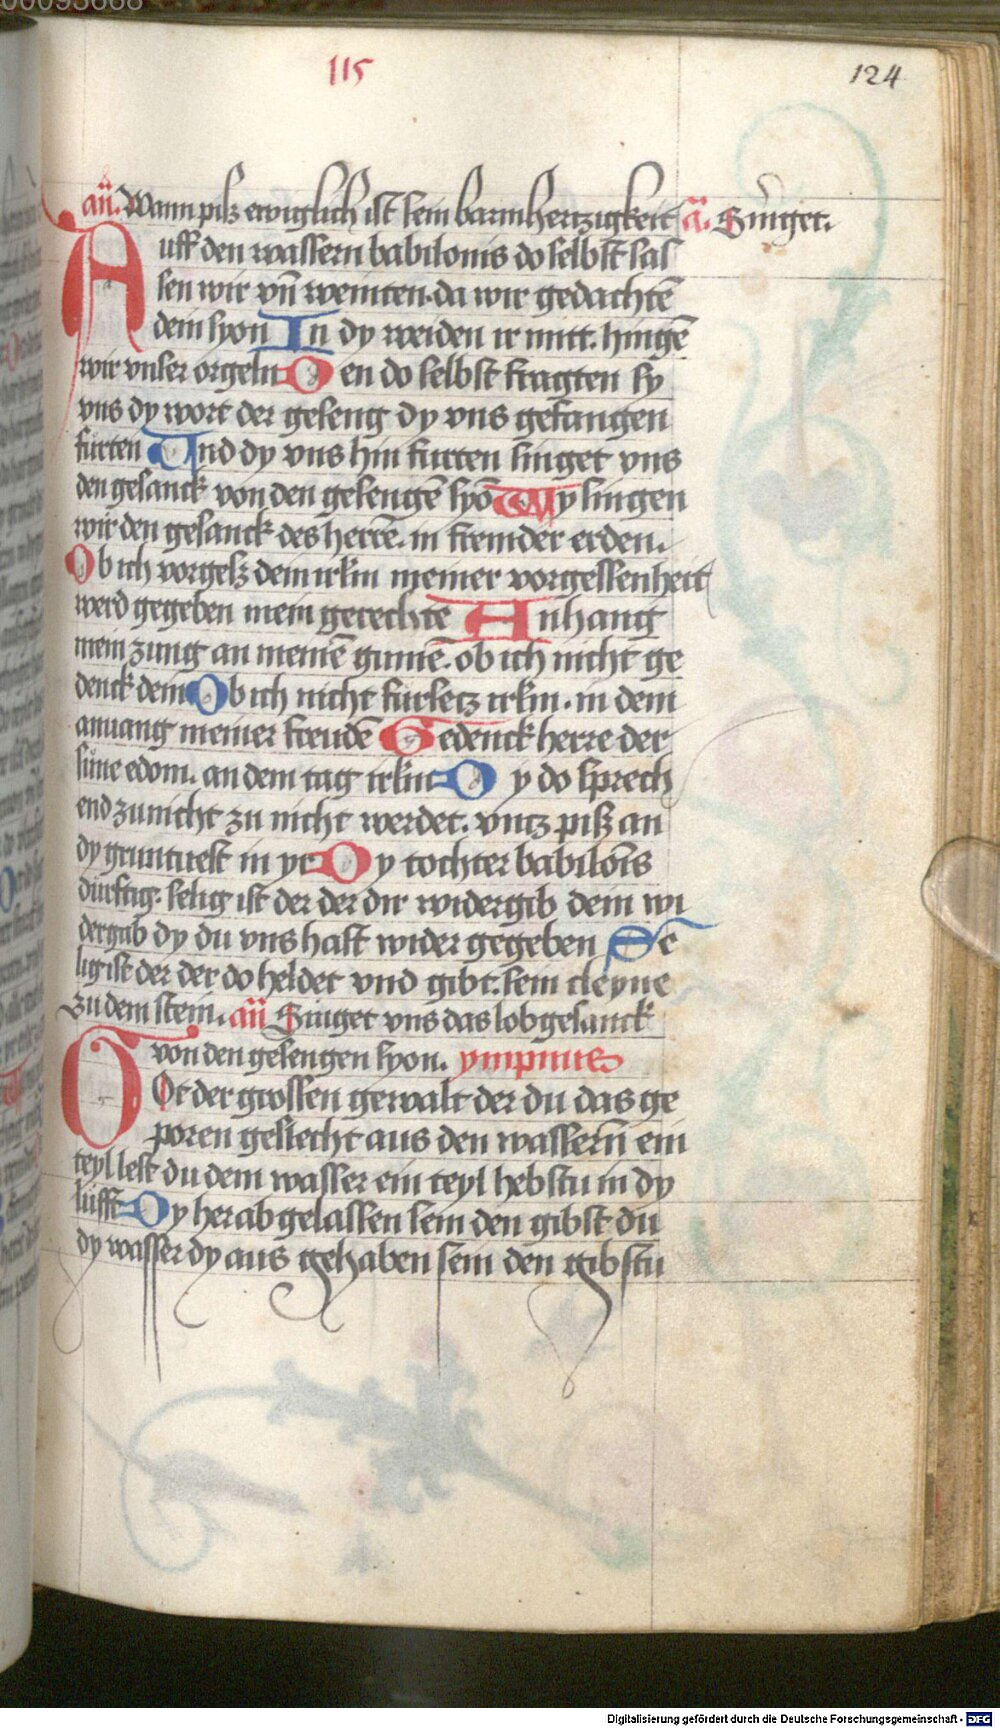 00093668
115
124
an̄. Wann piß ewiglich ist sein barmhertzigkeit a. Singet.
Auff den wassern babilonis do selbst sas
sen wir vn̄ weinten. da wir gedachtē
dein syon In dy weiden ir mitt. hingē
wir vnser orgeln Den do selbst fragten sy
vns dy wort der geseng dy vns gefangen
furten Vnd dy vns hin furten singet vns
den gesanck von den gesengē syō Wy singen
wir den gesanck des herrē. in fremder erden.
Ob ich vorgeß dein irlm meiner vorgessenheit
werd gegeben mein gerechte Anhang
mein zung an meinē gumē. ob ich nicht ge
denck dein Ob ich nicht fursecz irlm. in dem
anuang meiner freudē Gedenck herre der
sune edom. an dem tag irlm Dy do sprech
end zu nicht zu nicht werdet. vntz piß an
dy gruntuest in yr Dy tochter babilōis
durftig. selig ist der der dir widergib dein wi
dergab dy du vns hast wider gegeben Se
lig ist der der do heldet vnd gibt. sein cleyne
zu dem stein. an̄ Singet vns das lobgesanck
von den gesengen syon. ympnus
GOt der grossen gewalt der du das ge
poren geslecht aus den wassern ein
teyl lest du dem wasser ein teyl hebstu in dy
lufft Dy herab gelassen sein den gibst du
dy wasser dy aus gehaben sein den gibstu
Digitalisierung gefördert durch die Deutsche Forschungsgemeinschaft - DFG